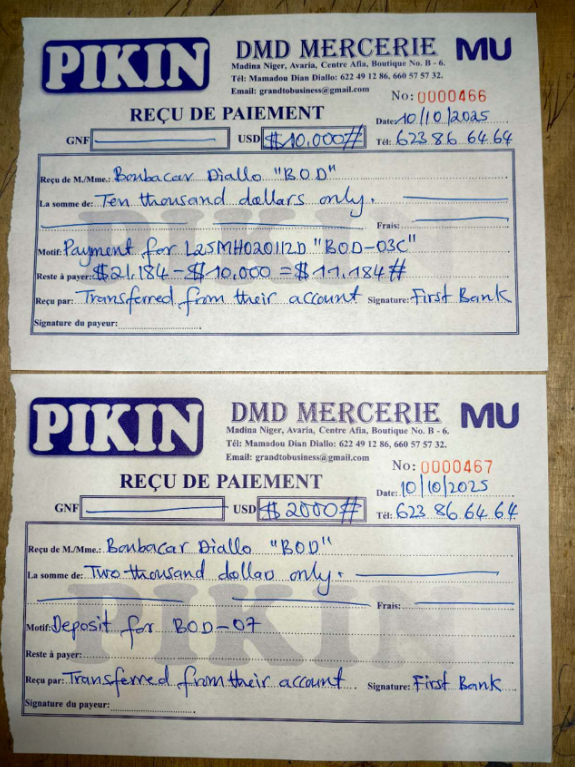 PIKIN
DMD MERCERIE MU
Madina Niger, Avaria, Centre Afia, Boutique No. B - 6.
Tél: Mamadou Dian Diallo: 622 49 12 86, 660 57 57 32.
Email: grandtobusiness@gmail.com
No: 0000466
REÇU DE PAIEMENT
Date: 10/10/2025
GNF USD $10.000#
Tél: 623 86 64 64
Reçu de M./Mme.: Boubacar Diallo "BOD"
La somme de: Ten thousand dollars only.
Frais:
Motif: Payment for L25MH020112D "BOD-03C"
Reste à payer: $21,184 - $10.000 = $11.184#
Reçu par: Transferred from their account Signature: First Bank
Signature du payeur:
PIKIN
PIKIN
DMD MERCERIE MU
Madina Niger, Avaria, Centre Afia, Boutique No. B - 6.
Tél: Mamadou Dian Diallo: 622 49 12 86, 660 57 57 32.
Email: grandtobusiness@gmail.com
No: 0000467
REÇU DE PAIEMENT
Date: 10/10/2025
GNF USD $2000#
Tél: 623 86 64 64
Reçu de M./Mme.: Boubacar Diallo "BOD"
La somme de: Two thousand dollars only.
Frais:
Motif: Deposit for BOD-07
Reste à payer:
Reçu par: Transferred from their account Signature: First Bank
Signature du payeur:
PIKIN